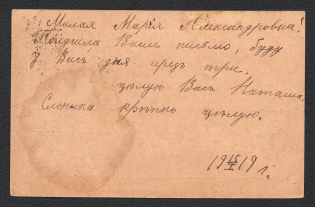 Милая Марія Александровна!
Получила Ваше письмо, буду
у Васъ дня черезъ три.
цѣлую Васъ Наташа.
Слоника крѣпко цѣлую.
19 15/I 19 г.